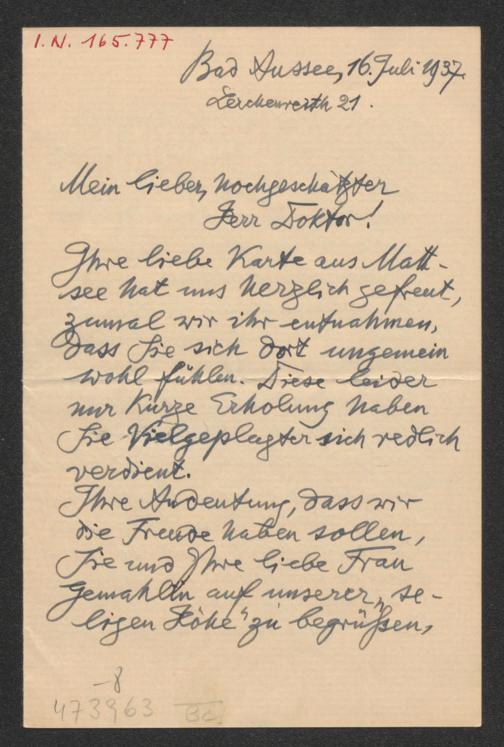 I.N. 165.777
Bad Aussee, 16. Juli 1937.
Lerchenreith 21.
Mein lieber, hochgeschätzter
Herr Doktor!
Ihre liebe Karte aus Matt-
see hat uns herzlich gefreut,
zumal wir ihr entnahmen,
dass Sie sich dort ungemein
wohl fühlen. Diese leider
nur kurze Erholung haben
Sie Vielgeplagter sich redlich
verdient.
Ihre Andeutung, dass wir
die Freude haben sollen,
Sie und Ihre liebe Frau
Gemahlin auf unserer „se-
ligen Höhe" zu begrüßen,
-8
473963 Be